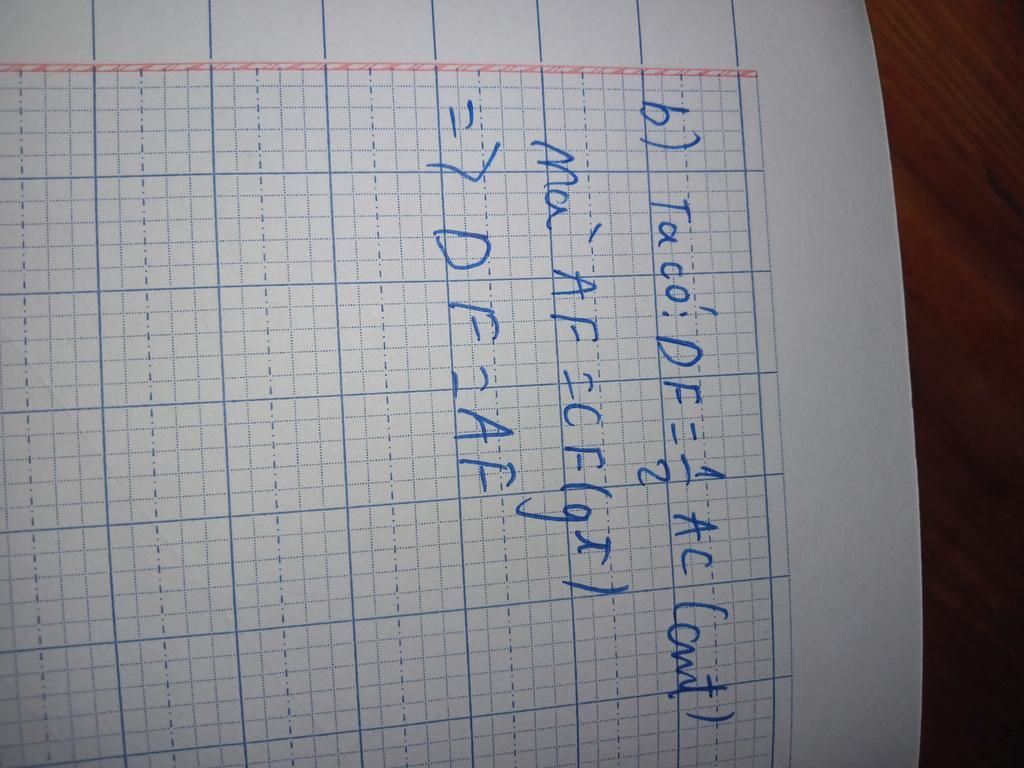 b) Ta có: DE = 1/2 AC (cmt)
Mà AF = CF (gt)
=> DE = AF